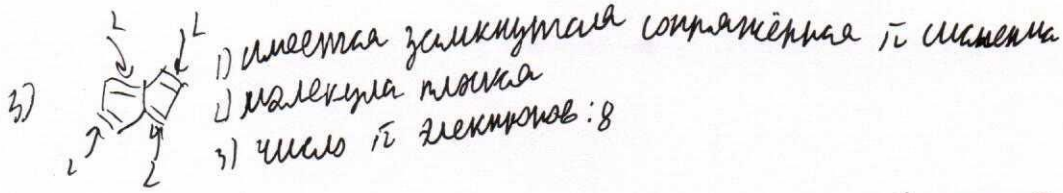 2 2
1) имеется замкнутая сопряжённая π система
3)
2) молекула плоская
3) число π электронов: 8
2 2